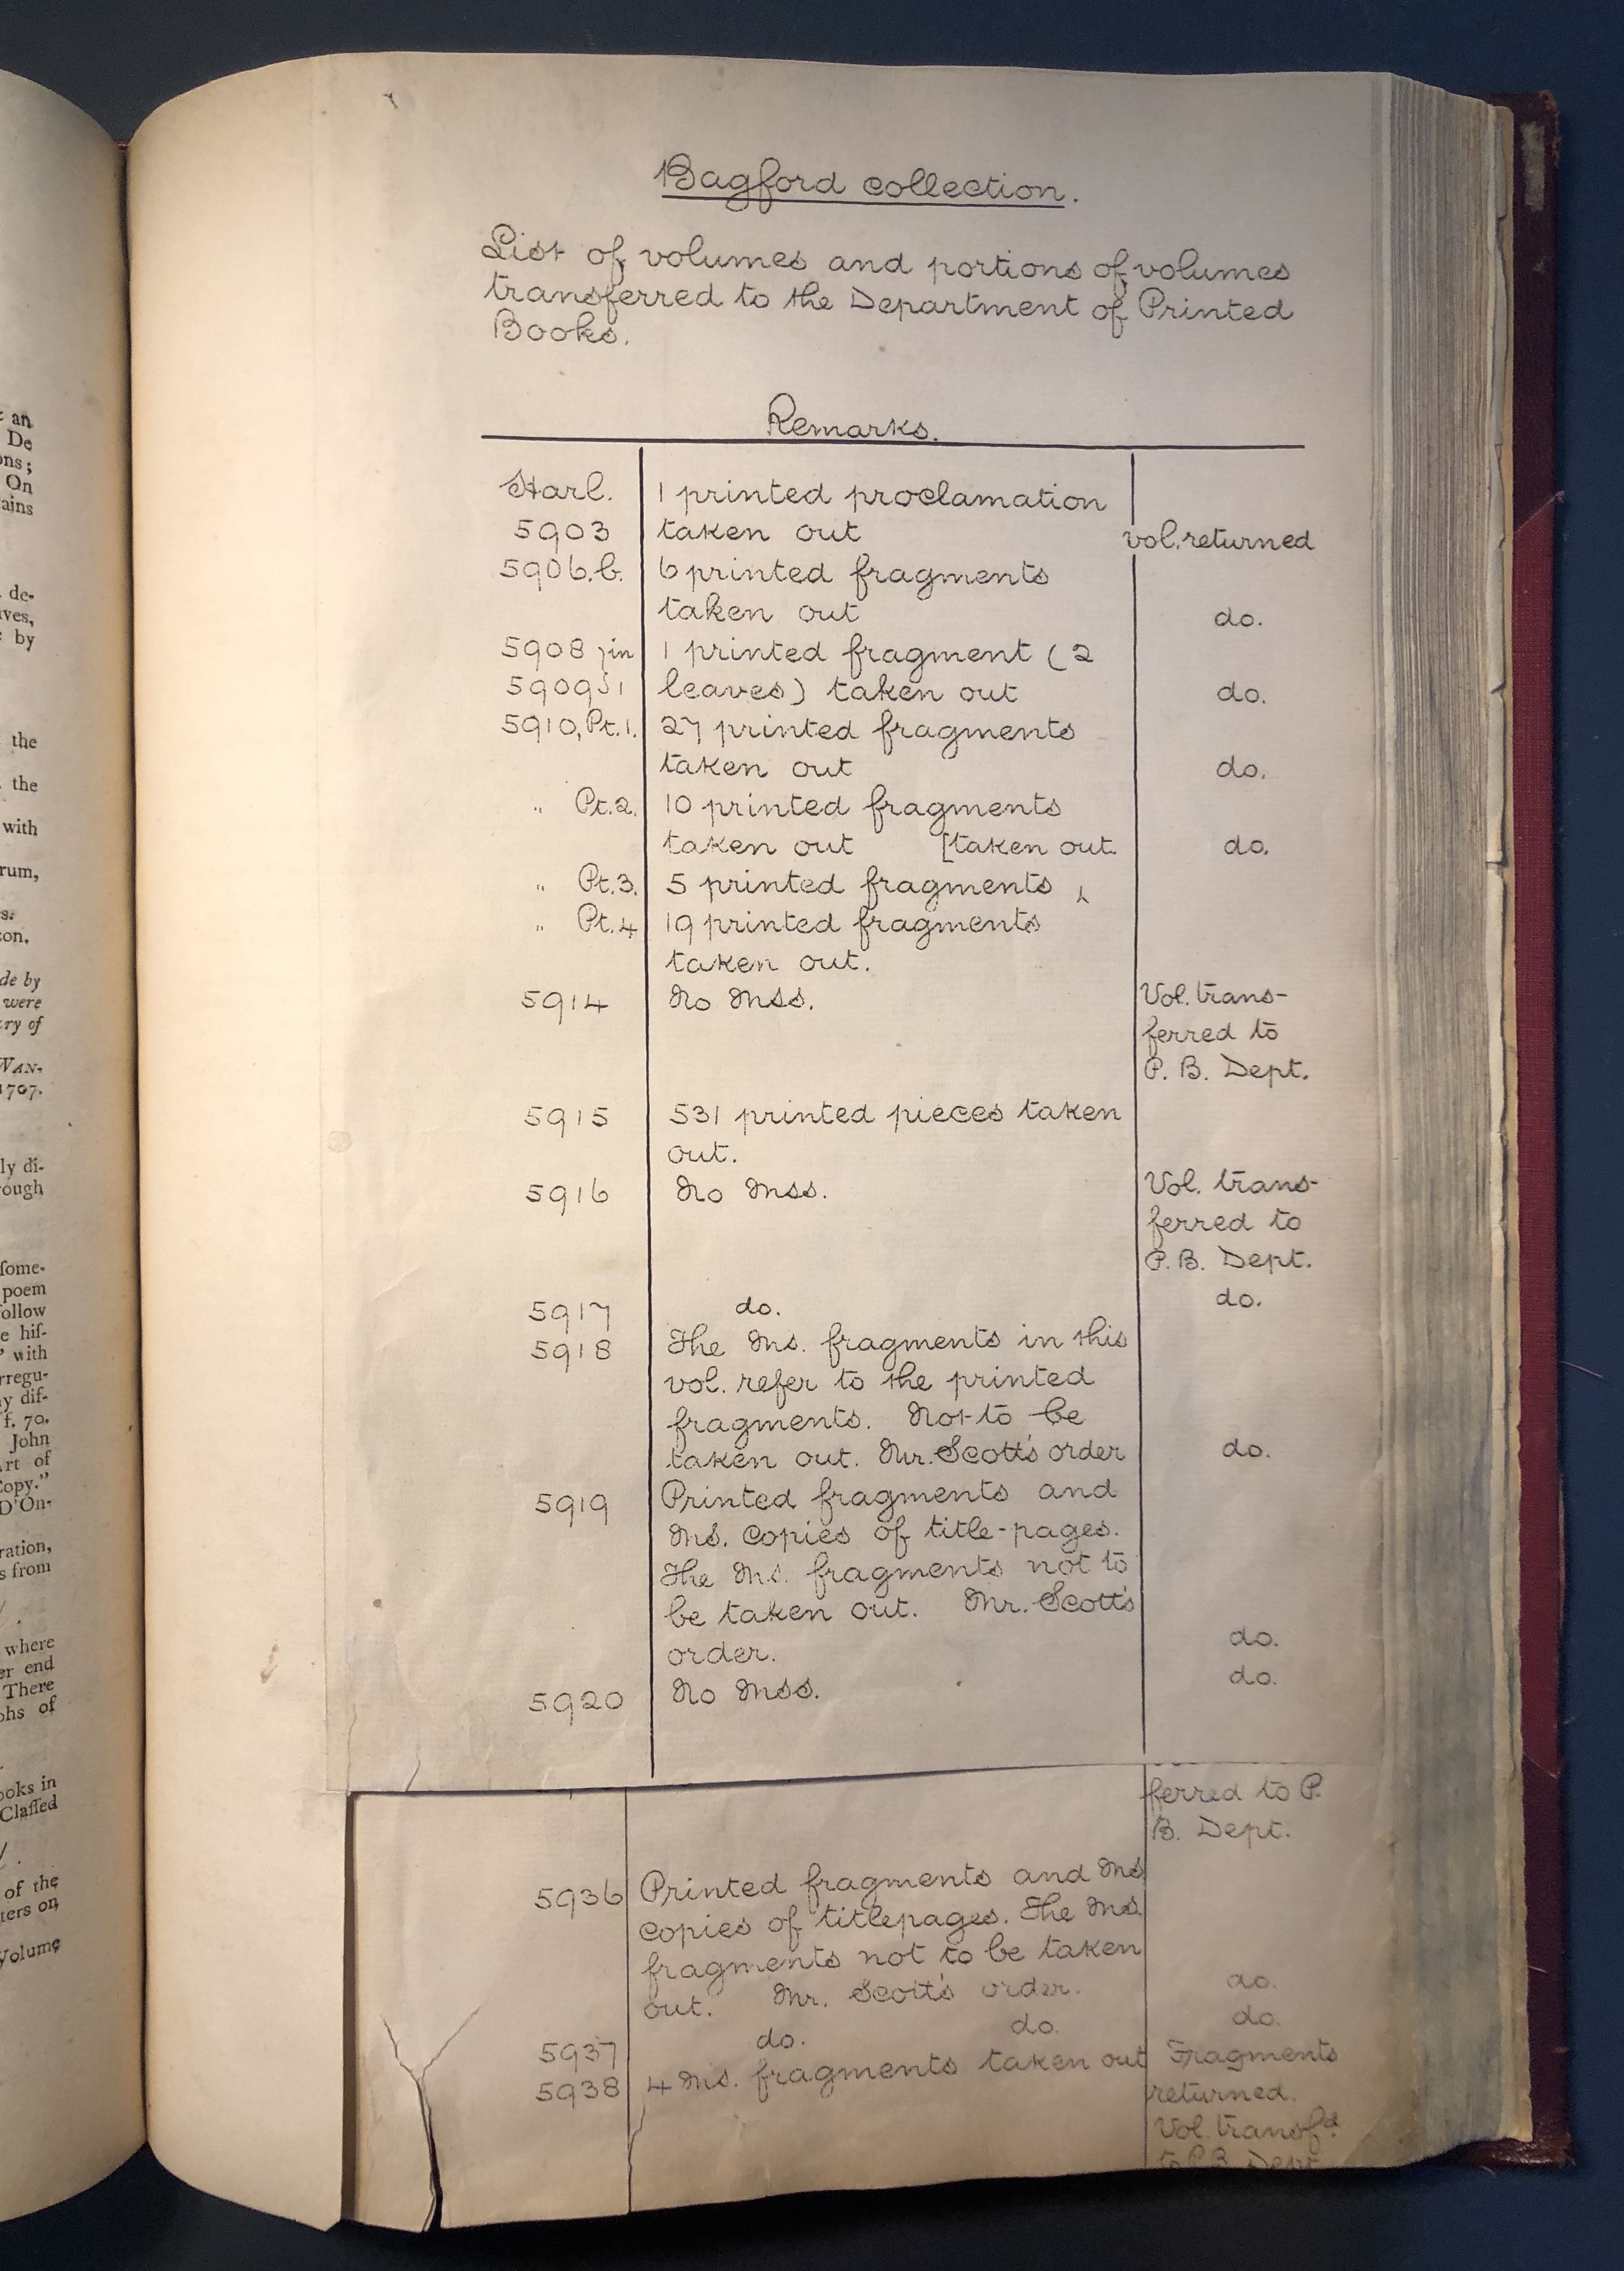 an
De
ons;
On
tains
de-
ives,
by
the
the
with
rum,
s:
con.
de by
were
ry of
WAN-
1707.
ly di-
rough
some-
poem
follow
e his-
" with
rregu-
y dif-
f. 70.
John
Art of
Copy."
D'On-
ration,
s from
where
er end
There
phs of
ooks in
Classed
of the
ters on
Volume
Bagford collection.
List of volumes and portions of volumes
transferred to the Department of Printed
Books.
Remarks.
Harl. 1 printed proclamation
5903 taken out vol. returned
5906.b. 6 printed fragments
taken out do.
5908 } in 1 printed fragment (2
5909 } 1 leaves) taken out do.
5910, Pt.1. 27 printed fragments
taken out do.
" Pt.2. 10 printed fragments
taken out [taken out. do.
" Pt.3. 5 printed fragments ‸
" Pt.4 19 printed fragments
taken out.
5914 No MSS. Vol. trans-
ferred to
P. B. Dept.
5915 531 printed pieces taken
out.
5916 No MSS. Vol. trans-
ferred to
P. B. Dept.
5917 do. do.
5918 The MS. fragments in this
vol. refer to the printed
fragments. Not to be
taken out. Mr. Scott's order do.
5919 Printed fragments and
MS. copies of title-pages.
The MS. fragments not to
be taken out. Mr. Scott's
order. do.
5920 No MSS. do.
ferred to P.
B. Dept.
5936 Printed fragments and MS
copies of titlepages. The MS.
fragments not to be taken
out. Mr. Scott's order. do.
5937 do. do. do.
5938 4 MS. fragments taken out Fragments
returned.
Vol. transfd.
to P.B. Dept